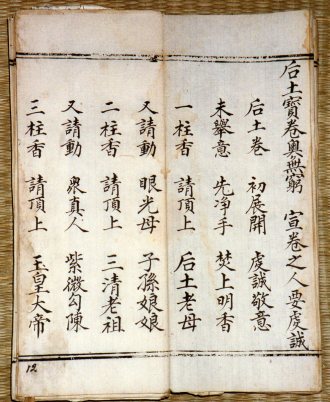 后土寶卷奧無窮 宣卷之人要虔誠
后土卷 初展開 虔誠敬意
未舉意 先净手 焚上明香
一柱香 請頂上 后土老母
又請動 眼光母 子孫娘娘
二柱香 請頂上 三清老祖
又請動 衆真人 紫微勾陳
三柱香 請頂上 玉皇大帝
12